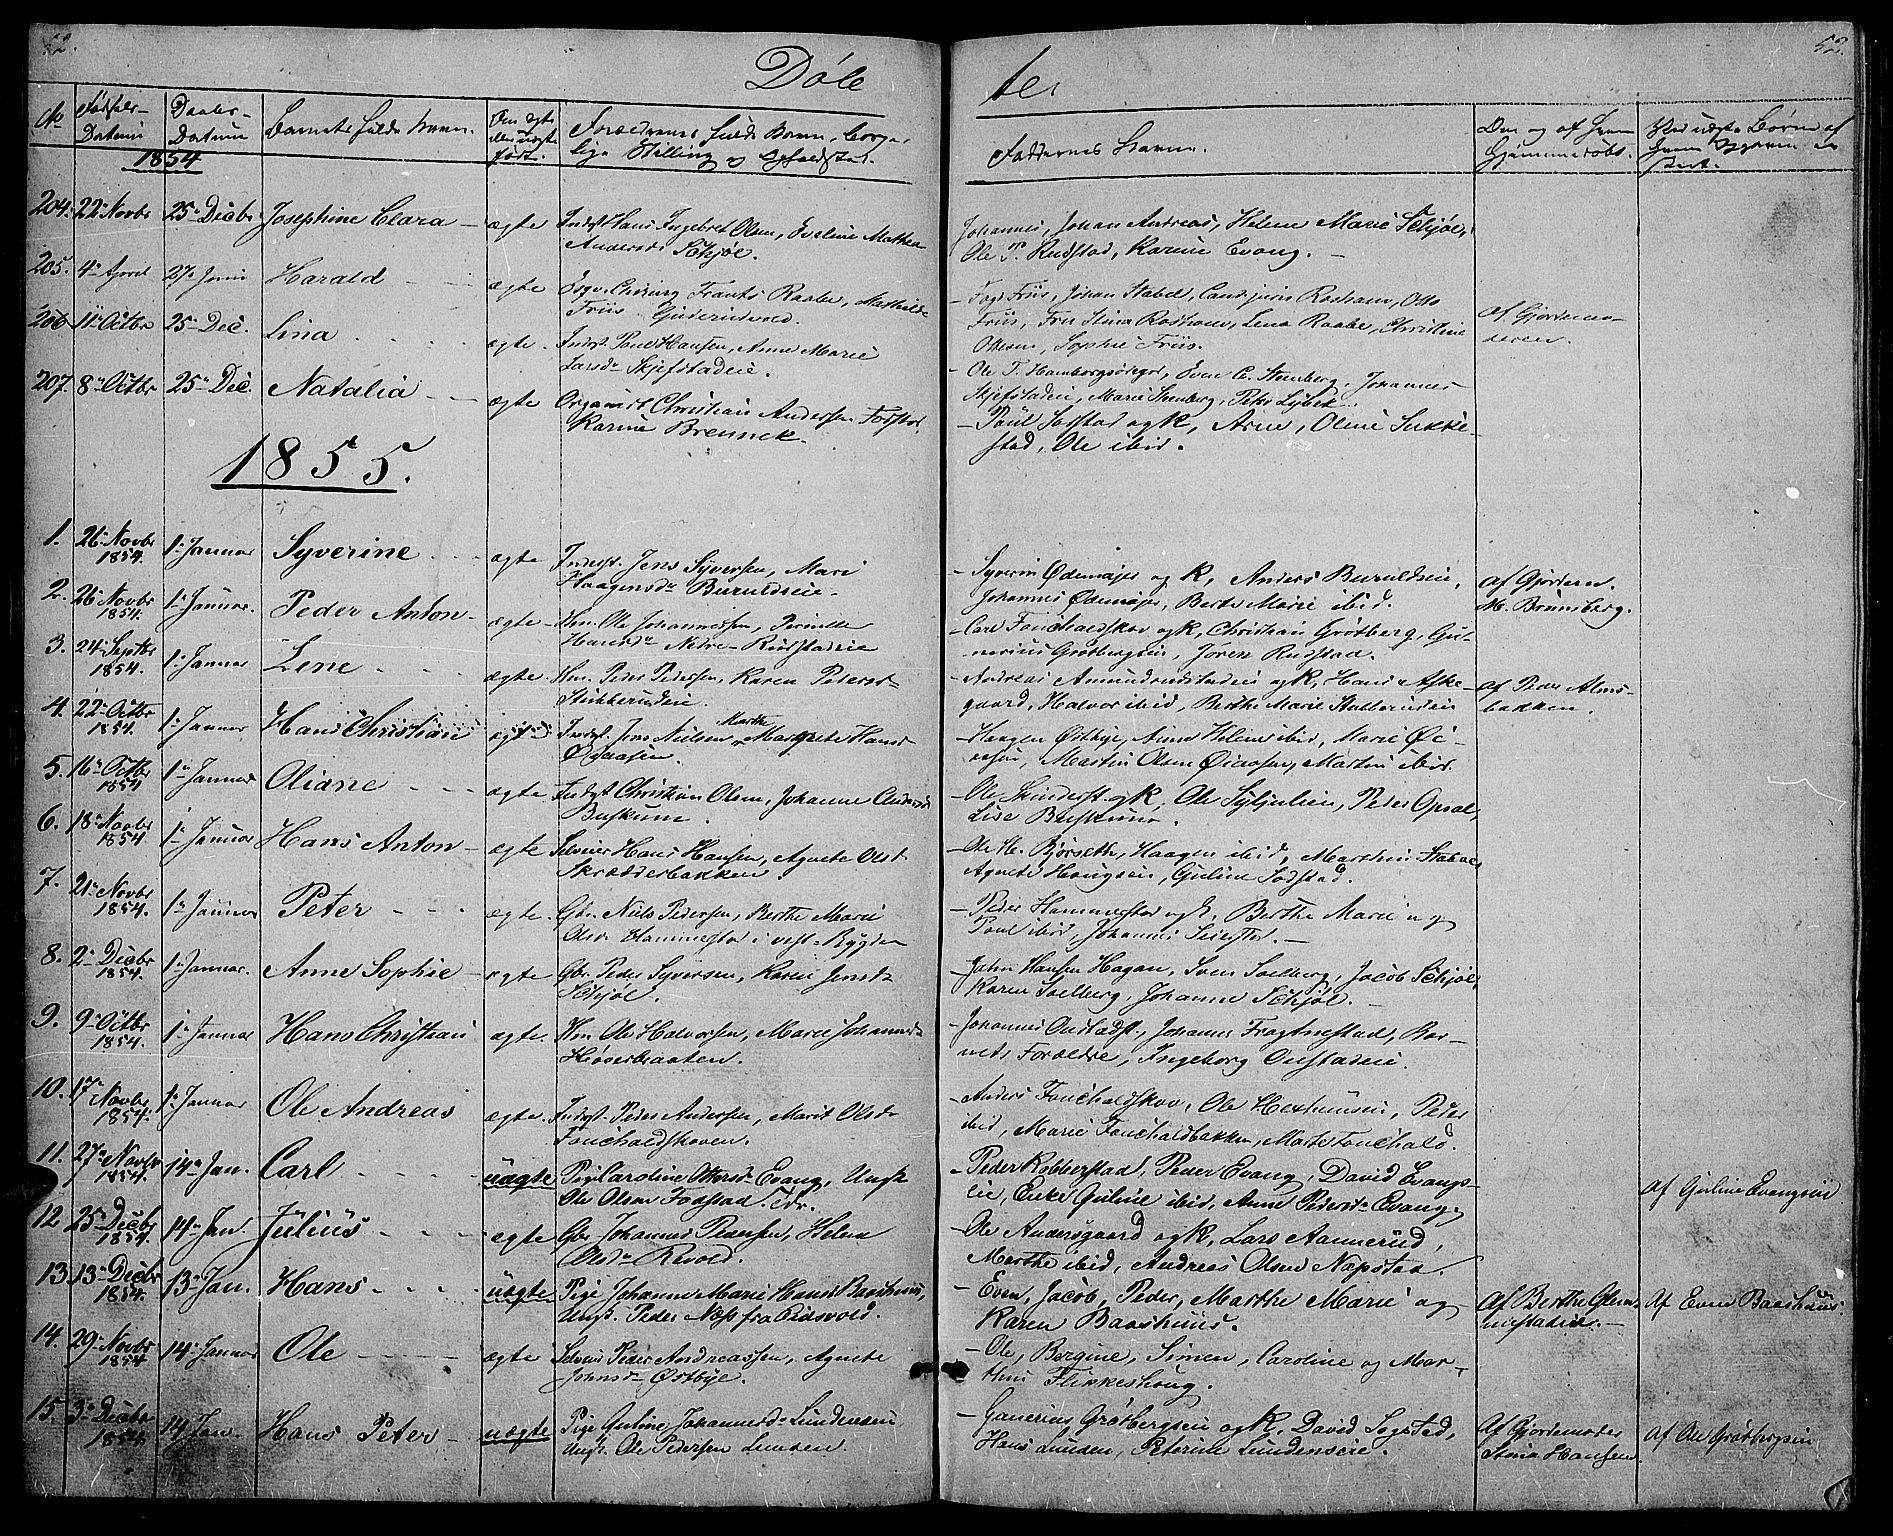 52.
Døbte.
52.
No
Fødsels-Datum
Daabs-Datum
Barnets fulde Navn.
Om ægte eller uægte født.
Forældrenes fulde Navn, borgerlige Stilling og Opholdsted.
Faddernes Navne.
Om og af hvem Hjemmedøbt.
Ved uægte Børn af hvem Opgaven er skeet.
1854
204. 22de Novbr 25de Decbr Josephine Clara ægte Indst Hans Ingebret Olsen, Eveline Mathea
Andersdr Schjøl.
Johannes, Johan Andreas, Helene Marie Schjøl,
Ole P. Rudstad, Karine Evang.
205. 4de April 27de Juni Harald ægte Chirurg Frants Raabe, Mathilde
Friis
Fogd Friis, Johan Stabel, Cand. juris Roshauw, Otto
Friis, Fru Stina Roshauw, Lena Raabe, Christine
Ottesen, Sophie Friis.
206 11te Octbr 25de Dec. Lina ægte. Indst. Poul Hansen, Anne Marie
Larsdr Skjefstadeie.
Ole T. Even C. Stenberg, Johannes
Skjefstadeie, Marie Stenberg, Peter Lybek.
af Gjordemo-
deren.
207. 8de Octbr 25de Dec. Natalia ægte Organist Christian Andersen Fodstad,
Karine Brennek.
Poul Fodstad og K, Arne, Oline Sukke-
stad, Ole ibid.
1855.
1. 26de Novbr 1854. 1ste Januar Syverine ægte Inderst. Jens Syversen, Mari
Haagensdr Buruldseie.
Syverin Ødemajes og K, Anders Buruldseie,
Johannes Ødemajes, Berte Marie ibid.
af Gjordem.
M. Brunsberg.
2. 26de Novbr 1854. 1ste Januar. Peder Anton ægte Hm. Ole Johannessen, Pernille
Hansdr Nedre-Rudstadeie
Carl Fonchaldskov og K, Christian Grøtberg, Gul-
Grøtbergseie, Jøren Rudstad.
3. 24de Septbr 1854. 1ste Januar Lene ægte. Hm. Peder Pedersen, Karen Pedersdr
Stubberudeie.
Andreas Amundrudstadeie og K, Hans Aske-
gaard, Halvor ibid, Berthe Marie Stubberudeie
af Peder Alms-
bakken.
4. 22de Octbr 1854. 1ste Januar Hans Christian ægte Indst. Jens Nielsen, Marthe Margrete Hansd
Øiaasen.
Haagen Østbye, Anne Helene ibid, Marie Øi-
aasen, Martin Olsen Øiaasen, Martin ibid.
5. 16de Octbr 1854 1ste Januar Oliane ægte Indst Christian Olsen, Johanne Andersd
Buskum.
Ole Skinderst. og K, Ole Syljulien, Peder Opsal,
Lise Buskum.
6. 18de Novbr 1854 1ste Januar Hans Anton ægte Selveier Hans Hansen, Agnete Olsdr
Skrædderbakken.
Ole H. Bjørseth, Haagen ibid, Marthin Stabæk,
Agnete Haugseie, Guline Fodstad.
7. 21de Novbr 1854. 1ste Januar Peter ægte. Gbr. Niels Pedersen, Berthe Marie
Olsdr Hammerstad i vestre Bygden
Peder Hammerstad og K, Berthe Marie og
Poul ibid, Johannes
8. 2den Decbr 1854. 1ste Januar. Anne Sophie ægte Gbr. Peder Syversen, Karen Jensdr
Schjøl.
John Hansen Hagan, Sven Solberg, Jacob Schjøl,
Karen Solberg, Johanne Schjøl.
9. 9de Octbr 1854. 1ste Januar Hans Christian ægte. Hm. Ole Halvorsen, Marie Johannesdr
Høverbraaten.
Johannes Onstadst., Johannes Fragtnestad, Bar-
nets Forældre, Ingeborg Onstadeie.
10. 17de Novbr 1854. 1ste Januar Ole Andreas ægte. Indst. Peder Andersen, Marit Olsdr
Fonchaldskoven.
Anders Fonchaldskov, Ole Hexhumseie, Peder
ibid, Marie Fonchaldbakken, Marte Fonchald.
11. 27de Novbr 1854. 14de Jan. Carl uægte Pige Caroline Ottersdr Evang, Ungk
Ole Olsen Fodstad.
Peder Kobberstad, Peder Evang, David Evangs-
eie, Enke Guline ibid, Anne Pedersdr Evang.
af Guline Evangseie
12. 25de Decbr 1854. 14de Jan Julius ægte Gbr Johannes Pedersen, Helene
Olsdr Revold.
Ole Andersgaard og K, Lars Aannerud,
Marthe ibid, Andreas Olsen Napstad.
13. 13de Decbr 1854. 13de Jan. Hans uægte Pige Johanne Marie Hansd Baashuus,
Ungk. Peder Næss fra Eidsvold.
Even, Jacob, Peder, Marthe Marie og
Karen Baashuus.
Af Berthe Glem-
mestadeie.
Af Even Baashuus.
14. 29de Novbr 1854 14de Januar Ole ægte Selveier Peder Andreassen, Agnete
Johnsdr Østbye.
Ole, Bergine, Simen, Caroline og Mar-
thin Flikkeshoug.
15. 3die Decbr 1854 14 Jan. Hans Peter uægte Pige Guline Johannesdr Lundeneie
Ungk. Ole Pedersen Lunden.
Gunerius Grøtbergseie og K, David Sogstad,
Hans Lunden, Peterine Lundenseie.
Af Gjordemoder
Stina Hansen.
Af Ole Grøtbergseie